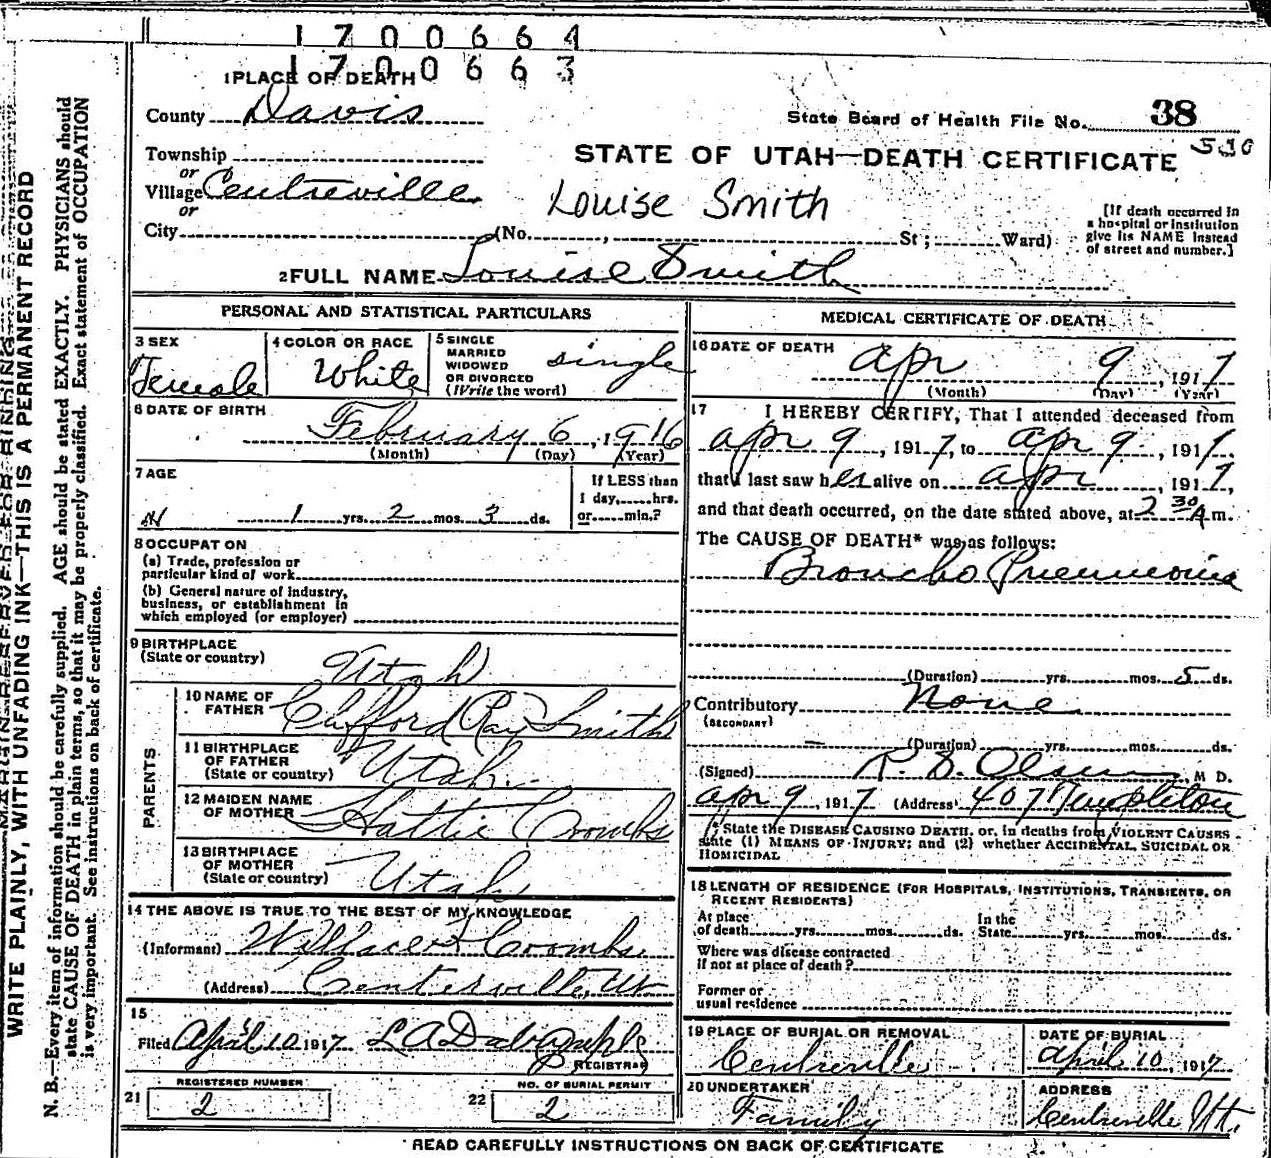 1 7 0 0 6 6 4
1 7 0 0 6 6 3
1 PLACE OF DEATH
County Davis
State Board of Health File No. 38
530
Township
or
Village Centreville
or
City (No. , St ; Ward)
STATE OF UTAH—DEATH CERTIFICATE
Louise Smith
[If death occurred in
a hospital or institution
give its NAME instead
of street and number.]
2 FULL NAME Louise Smith
PERSONAL AND STATISTICAL PARTICULARS
3 SEX
Female
4 COLOR OR RACE
White
5 SINGLE
MARRIED
WIDOWED
OR DIVORCED
(Write the word)
single
6 DATE OF BIRTH
February 6, 1916
(Month) (Day) (Year)
7 AGE
1 yrs. 2 mos. 3 ds.
If LESS than
1 day, hrs.
or min.?
8 OCCUPATION
(a) Trade, profession or
particular kind of work
(b) General nature of industry,
business, or establishment in
which employed (or employer)
9 BIRTHPLACE
(State or country)
Utah
PARENTS
10 NAME OF
FATHER
Clifford Ray Smith
11 BIRTHPLACE
OF FATHER
(State or country)
Utah.
12 MAIDEN NAME
OF MOTHER
Hattie Coombs
13 BIRTHPLACE
OF MOTHER
(State or country)
Utah
14 THE ABOVE IS TRUE TO THE BEST OF MY KNOWLEDGE
(Informant) Coombs.
(Address) Centerville, Ut
15
Filed April 10 1917 L A
REGISTRAR
REGISTERED NUMBER
21 2
NO. OF BURIAL PERMIT
22 2
MEDICAL CERTIFICATE OF DEATH
16 DATE OF DEATH
Apr 9, 1917
(Month) (Day) (Year)
17 I HEREBY CERTIFY, That I attended deceased from
apr 9, 1917, to apr 9, 1917,
that I last saw her alive on apr, 1917,
and that death occurred, on the date stated above, at 2 30 A m.
The CAUSE OF DEATH* was as follows:
Broncho Pneumonia
(Duration) yrs. mos. 5 ds.
Contributory None
(SECONDARY)
(Duration) yrs. mos. ds.
(Signed) Olsen, M D.
apr 9, 1917 (Address) 407 Templeton
* State the DISEASE CAUSING DEATH, or, in deaths from VIOLENT CAUSES
state (1) MEANS OF INJURY; and (2) whether ACCIDENTAL, SUICIDAL OR
HOMICIDAL
18 LENGTH OF RESIDENCE (FOR HOSPITALS, INSTITUTIONS, TRANSIENTS, OR
RECENT RESIDENTS)
At place
of death yrs. mos. ds.
In the
State yrs. mos. ds.
Where was disease contracted
if not at place of death?
Former or
usual residence
19 PLACE OF BURIAL OR REMOVAL
Centreville
DATE OF BURIAL
April 10, 1917
20 UNDERTAKER
Family
ADDRESS
Centreville Ut.
READ CAREFULLY INSTRUCTIONS ON BACK OF CERTIFICATE
WRITE PLAINLY, WITH UNFADING INK—THIS IS A PERMANENT RECORD
N. B.—Every item of information should be carefully supplied. AGE should be stated EXACTLY. PHYSICIANS should
state CAUSE OF DEATH in plain terms, so that it may be properly classified. Exact statement of OCCUPATION
is very important. See instructions on back of certificate.